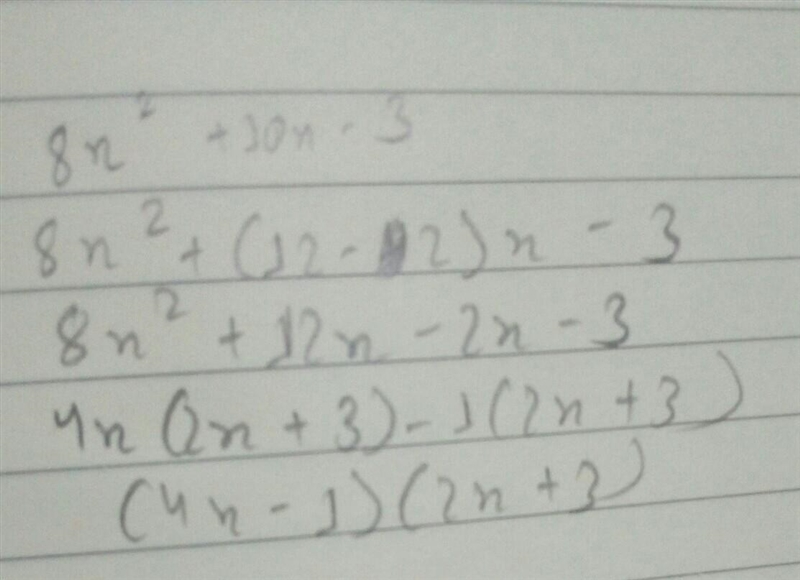 8x² + 10x - 3
8x² + (12 - 2)x - 3
8x² + 12x - 2x - 3
4x(2x + 3) - 1(2x + 3)
(4x - 1)(2x + 3)